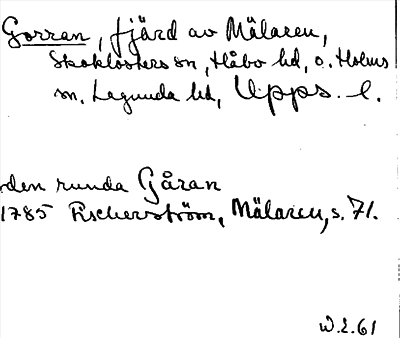 Gorran, fjärd av Mälaren,
Skoklosters sn, Håbo hd, o. Holms
sn. Lagunda hd, Upps. l.
den runda Gåran
1785 Fischerström, Mälaren, s. 71.
W.E.61